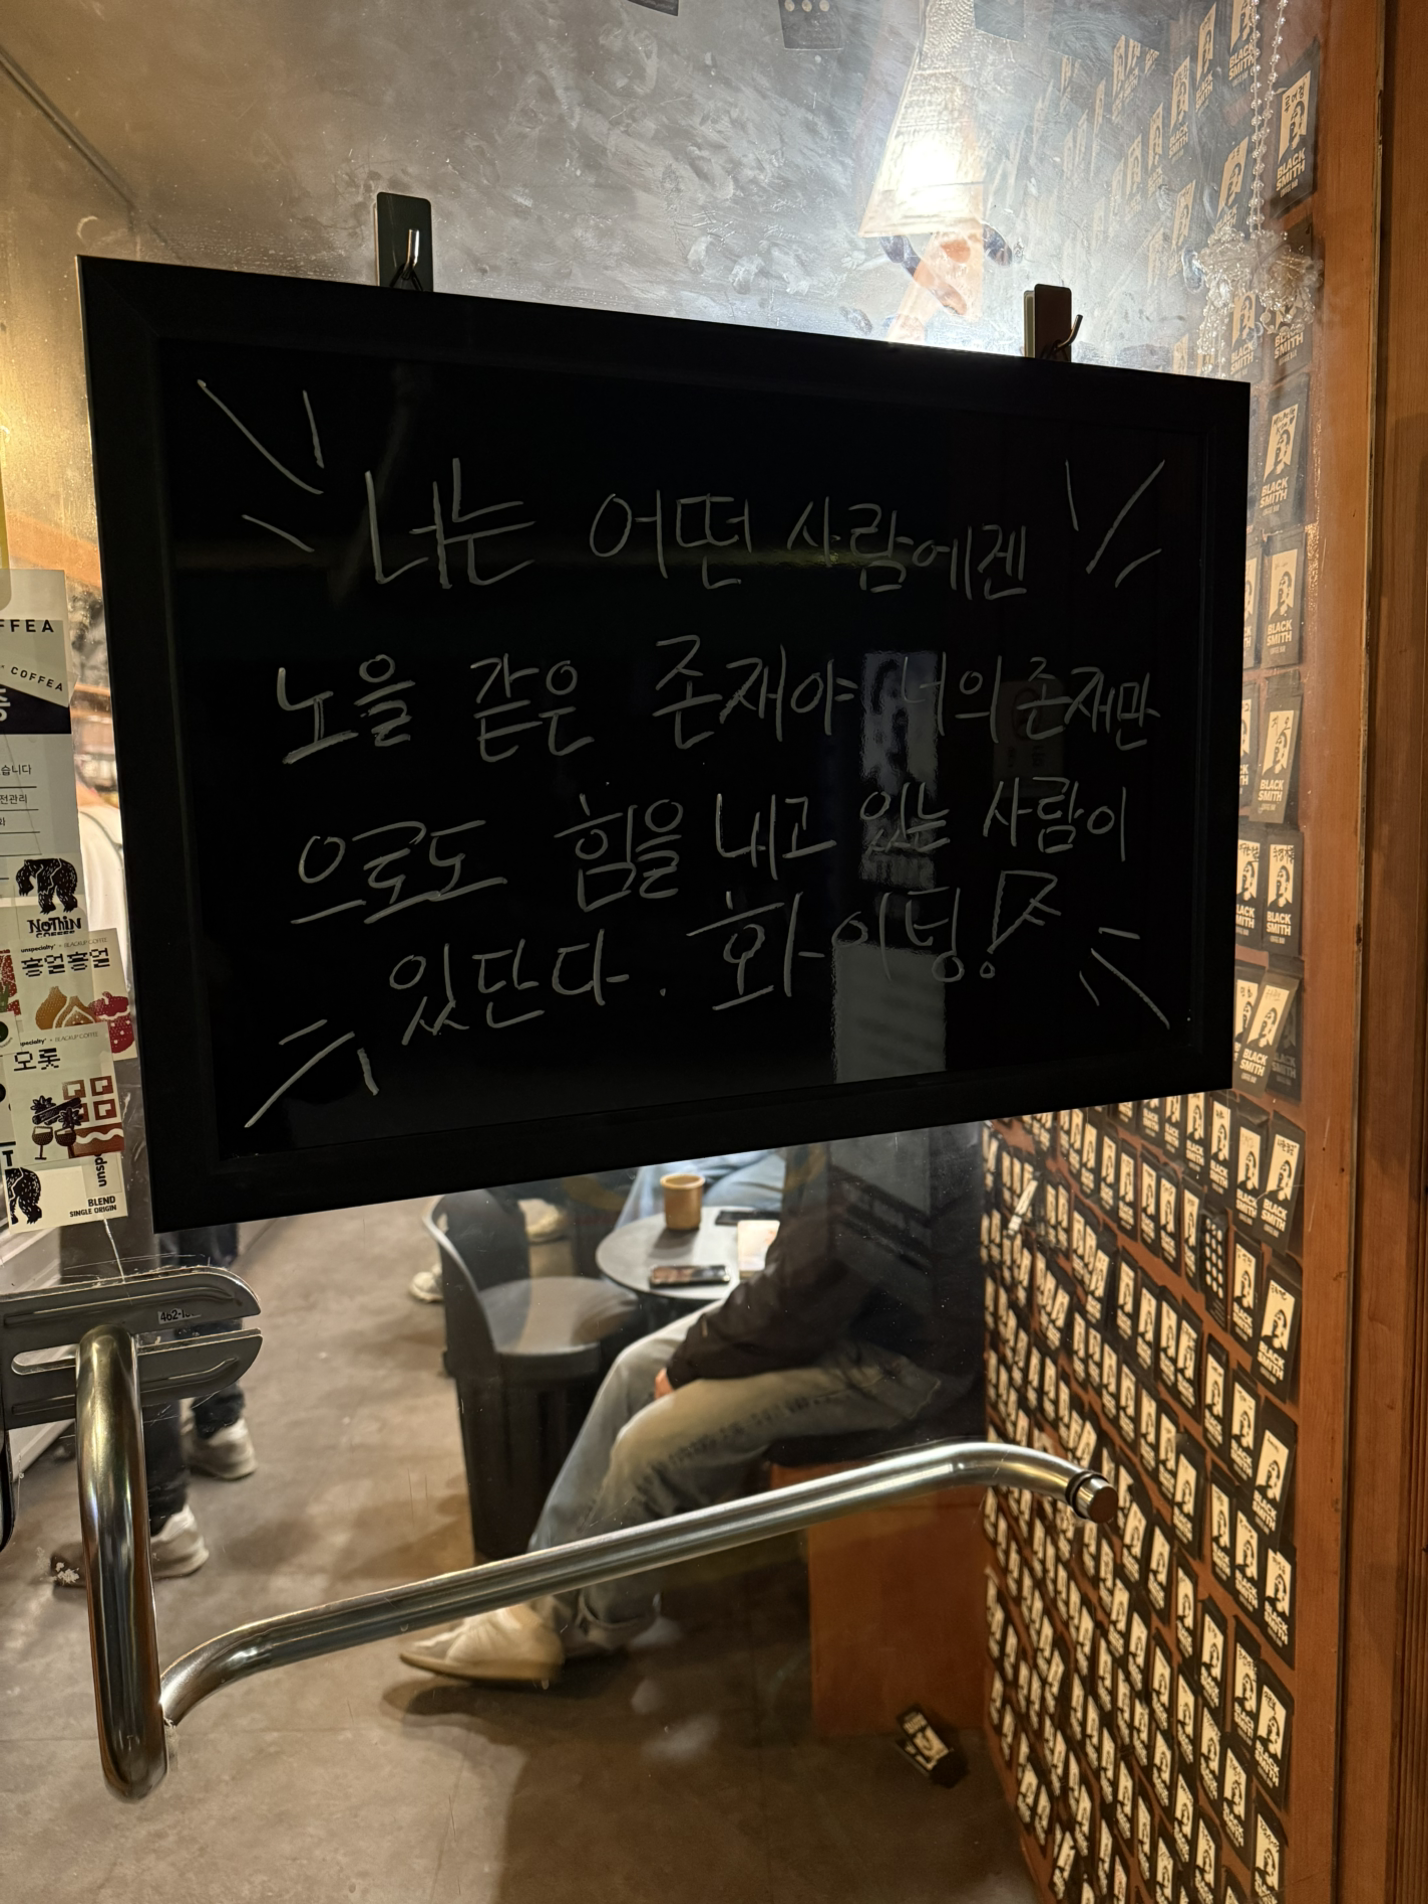 너는 어떤 사람에겐
노을 같은 존재야 너의 존재만
으로도 힘을 내고 있는 사람이
있단다. 화이팅!
FFEA
COFFEA
습니다
전관리
NOTHIN
COFFEE
unspecialty × BLACKUP COFFEE
홍얼홍얼
unspecialty × BLACKUP COFFEE
오롯
BLEND
SINGLE ORIGIN
BLACK
SMITH
BLACK
SMITH
BLACK
SMITH
BLACK
SMITH
BLACK
SMITH
BLACK
SMITH